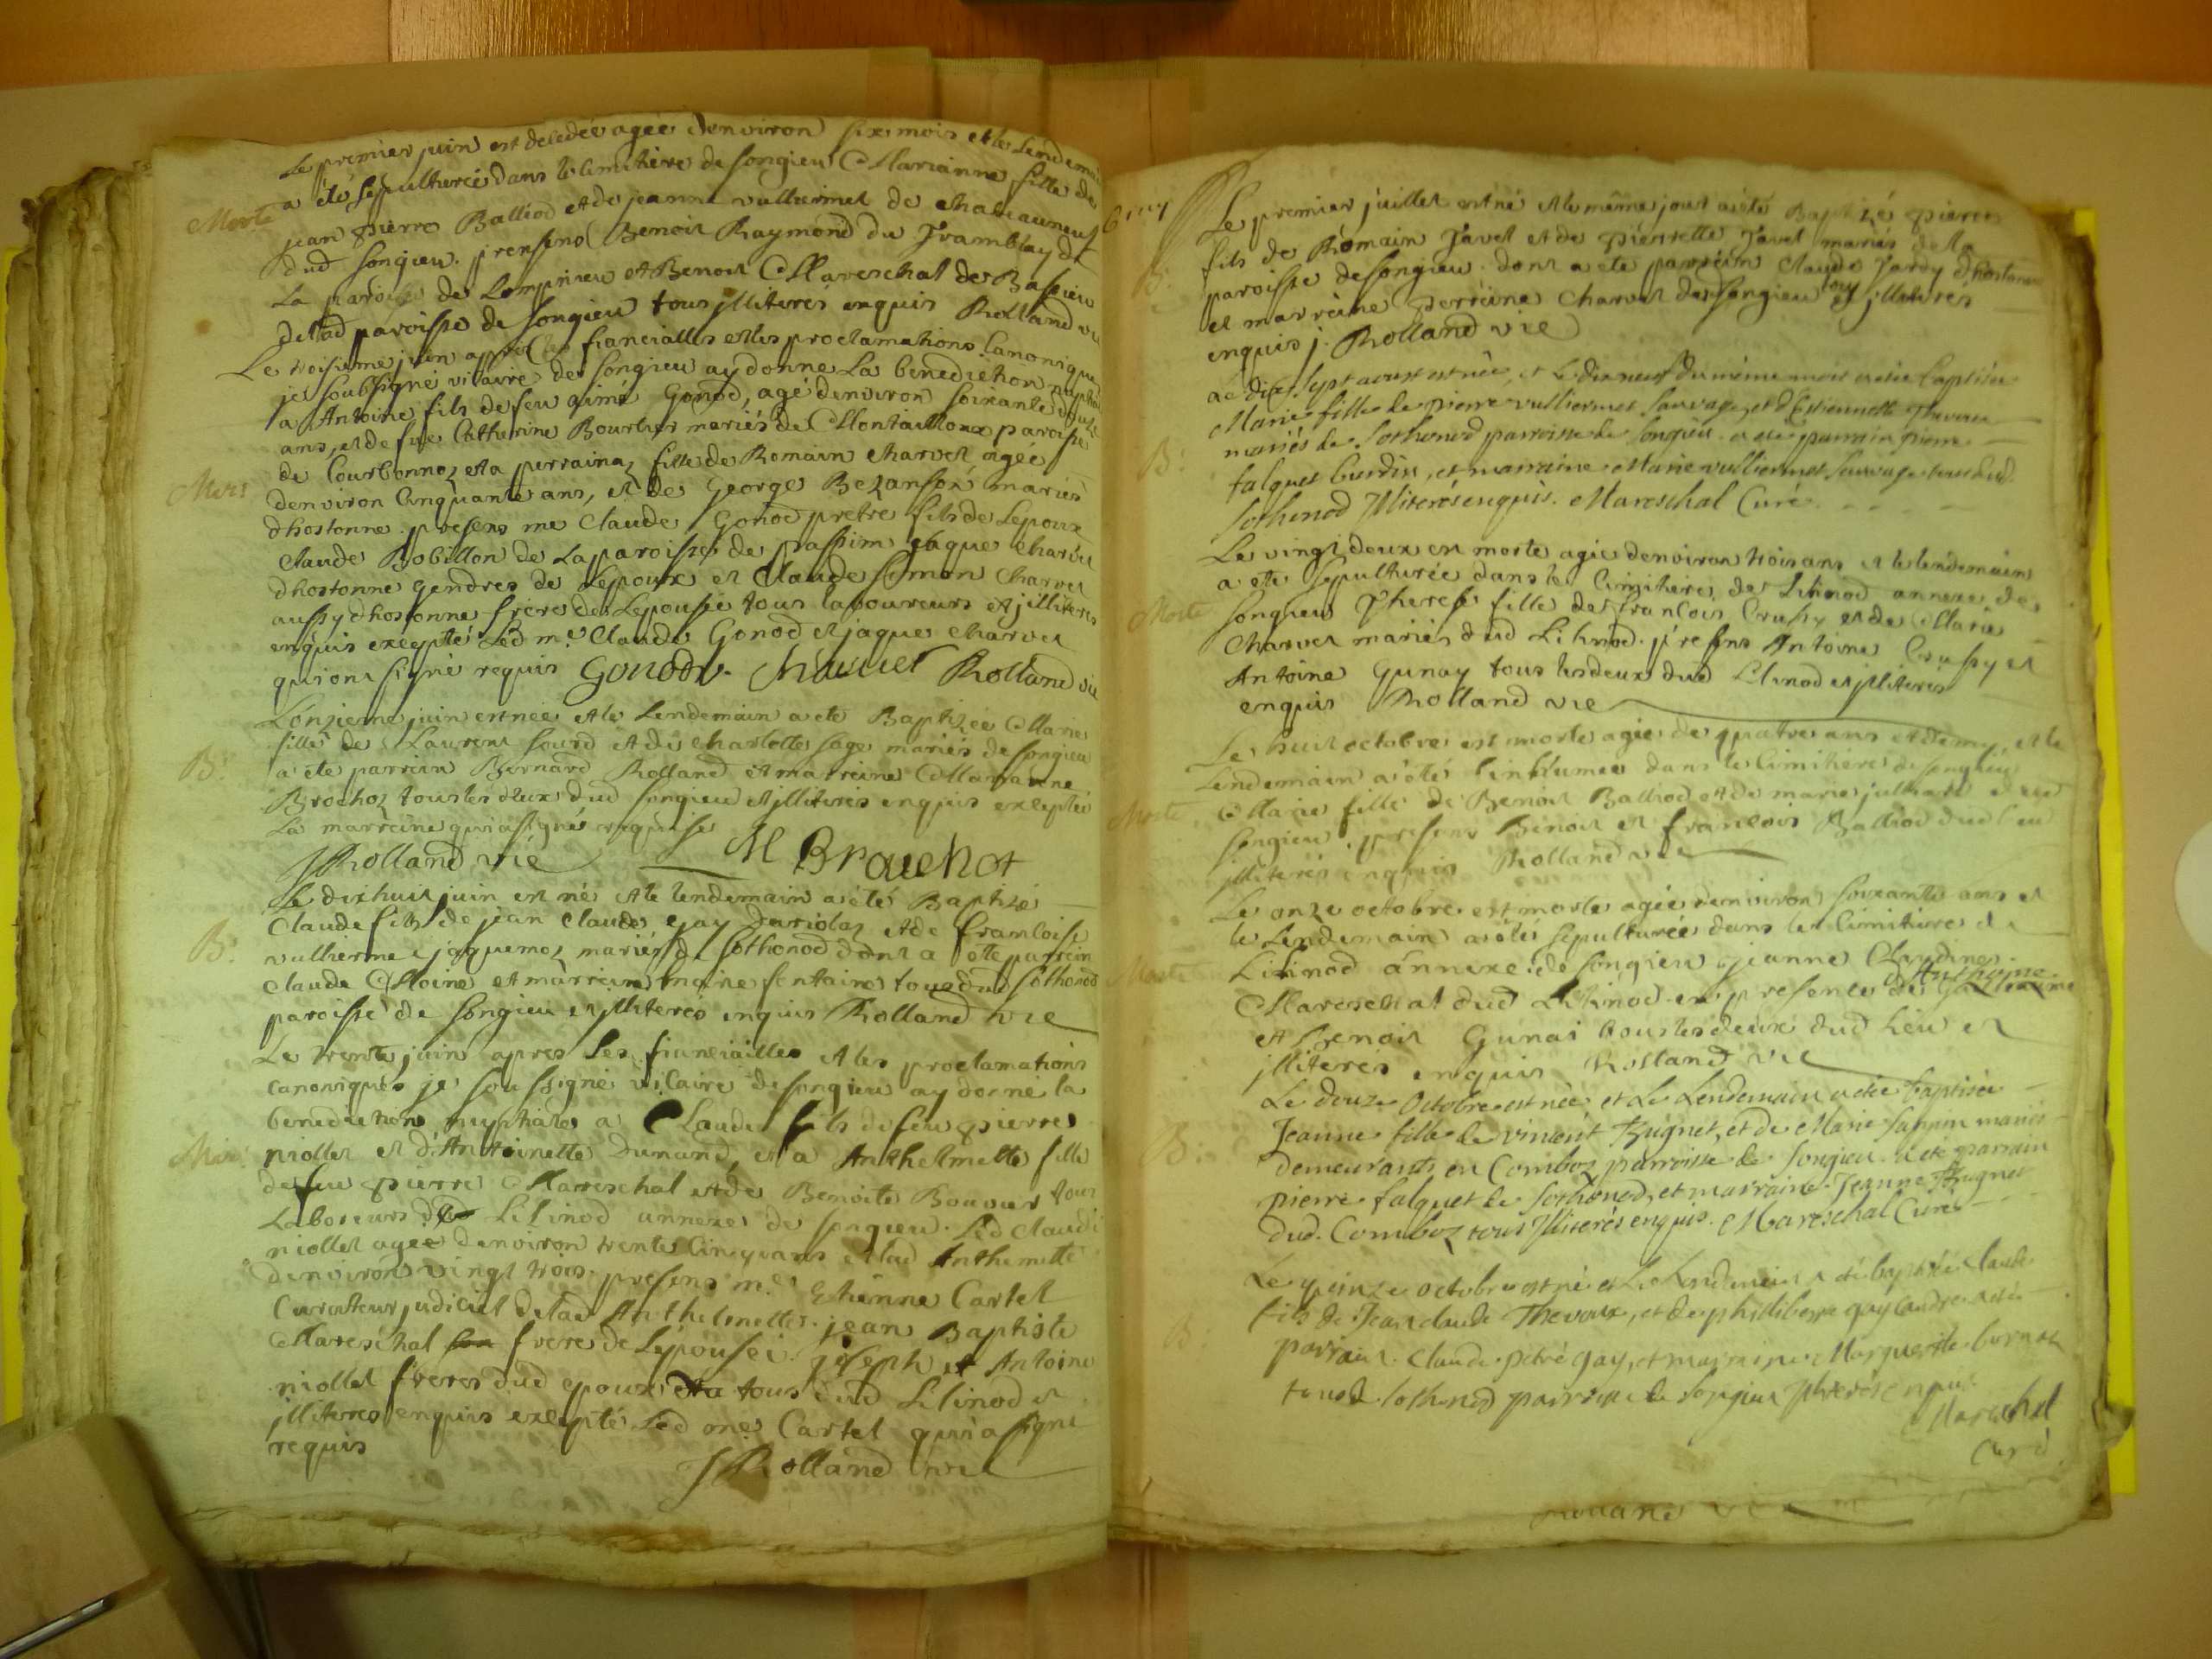 Le premier juin est decedée agée denviron six mois et le lendemain
a été sepulturée dans le cimitiere de songieu Marianne fille de
Morte
jean pierre Balliod et de jeanne vulliermet de chateauneuf
dud songieu. presens Benoit Raymond du Tramblay de
La paroisse de Lomprieu et Benoit Mareschal de Bassieu
delad paroisse de songieu tous jlliteres enquis Rolland vic
Le troisieme juin apres les fiancialles et les proclamations Canoniques
je soubsigné vicaire de songieu ay donne La benediction nuptiale
a Antoine fils de feu aimé Gonod, agé denviron soixante douze
ans, et de fue Catherine Bourbier mariés de Montailloux paroisse
de Courbonnoz et a perraina fille de Romain charvet agée
Mars
denviron Cinquante ans, et de George Bezanson mariés
dhostonne. presens me Claude Gonod pretre fils de Lepoux
Claude Robillon de La paroisse de passim jaque charvet
dhostonne gendres de Lepoux et Claude simon charvet
aussy dhostonne frere de Lepouse tous laboureurs et jlliteres
enquis excepté Led me Claude Gonod et jaque charvet
qui ont signé requis Gonod Charvet Rolland vic
L'onzieme juin est née et le Lendemain a eté Baptizée Marie
fille de Laurent sourd et de charlotte sage mariés de songieu
B:
a ete parrein Bernard Rolland et marreine Marianne
Brochoz tous les deux dud songieu et jlliteres enquis excepté
La marreine qui a signé requise
J Rolland vic M Brouchot
Le dix huit juin est né et le lendemain a été Baptizé
Claude fils de jean Claude gay Dariolaz et de francoise
B:
vullierme jaquemoz mariés de sothonod dont a ette parrein
Claude Moine et marreine marie fontaine tous dud sothonod
paroisse de songieu et jlliterés enquis Rolland vic
Le trente juin apres les fianciailles et les proclamations
canoniques je soussigné vicaire de songieu ay donné la
benediction nuptiale a Claude fils de feu pierre
Mar:
niollet et d'Antoinette Dunand, et a Anthelmette fille
de feu pierre Mareschal et de Benoite Bouvier tous
Laboreurs Lilinod annexe de songieu. Led Claude
niollet agee denviron trente Cinq ans et lad Anthemette
denviron vingt trois. presens me Etienne Cartel
Curateur judiciel delad Anthelmette. jean Baptiste
Mareschal frere de Lepouse. joseph et Antoine
niollet freres dud epoux tous dud Lilinod et
jlliteres enquis excepté Led me Cartel qui a signé
requis
J Rolland vic
Le premier juillet est né et le même jour a eté Baptizé pierre
fils de Romain Javet et de pierrette Javet mariés de la
B:
paroisse de songieu. dont a ete parrein Claude Jardy dhostonne
et marreine perreine Charvet de songieu jlliterés
enquis j. Rolland vic
Le dix sept aoust est née, et Le dix neuf du même mois a été baptisée
Marie fille de pierre vulliermet sauvage, et d'Estiennette Thevoux
B:
mariés de Sothonod parroisse de songieu a eté parrain pierre
falquet burdin, et marraine Marie vulliermet sauvage tous dud.
Sothonod Jlliterés enquis. Mareschal Curé
Le vingt deux est morte agée denviron trois ans et le lendemain
a ete sepulturée dans le cimitiere de Lilinod annexe de
Morte
songieu Therese fille de francois Crussy et de Marie
Charvet mariés dud Lilinod. presens Antoine Crussy et
Antoine Gunay tous les deux dud Lilinod et jlliteres
enquis Rolland vic
Le huit octobre est morte agée de quatre ans et demy, et le
lendemain a été inhumee dans le cimitiere de songieu
Morte
Marie fille de Benoit Balliod et de marie julliard dud
songieu. presens Benoit et francois Balliod dud lieu
jlliterés enquis Rolland vic
Le onze octobre est morte agée denviron soixante ans et
le Lendemain a été sepulturée dans le Cimitiere de
Morte
Lilinod annexe de songieu jeanne Claudine
Mareschal dud Lilinod. en presence de Anthoine
et Benoit Gunai tous les deux dud Lieu et
jlliterés enquis Rolland vic
Le douze Octobre est née et Le Lendemain a étée baptisée
Jeanne fille de vincent Hugnet, et de Marie sappin mariés
B:
demeurants en Comboz parroisse de Songieu. a été parrain
pierre falquet de sothonod, et marraine Jeanne Hugnet
dud. Comboz tous Jlliterés enquis. Mareschal Curé
Le quinze octobre est né et Le Lendemain a été baptisé claude
fils de Jean claude Thevoux, et de phillibesse gay a été
B:
parrain claude petré gay, et marraine Marguerite
tous de sothonod parroisse de songieu Jlliterés enquis
Mareschal
Curé
Rolland vic